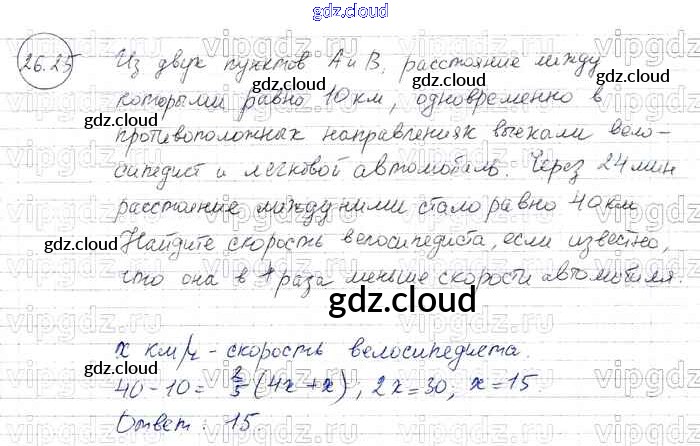 gdz.cloud
26.25 Из двух пунктов А и В, расстояние между
gdz.cloud gdz.cloud
которыми равно 10 км, одновременно в
gdz.cloud
противоположных направлениях выехали вело-
сипедист и легковой автомобиль. Через 24 мин
gdz.cloud
расстояние между ними стало равно 40 км
gdz.cloud gdz.cloud
Найдите скорость велосипедиста, если известно,
что она в 4 раза меньше скорости автомобиля.
gdz.cloud
x км/ч - скорость велосипедиста.
40 - 10 = 2/5 (4x + x), 2x = 30; x = 15.
Ответ: 15.